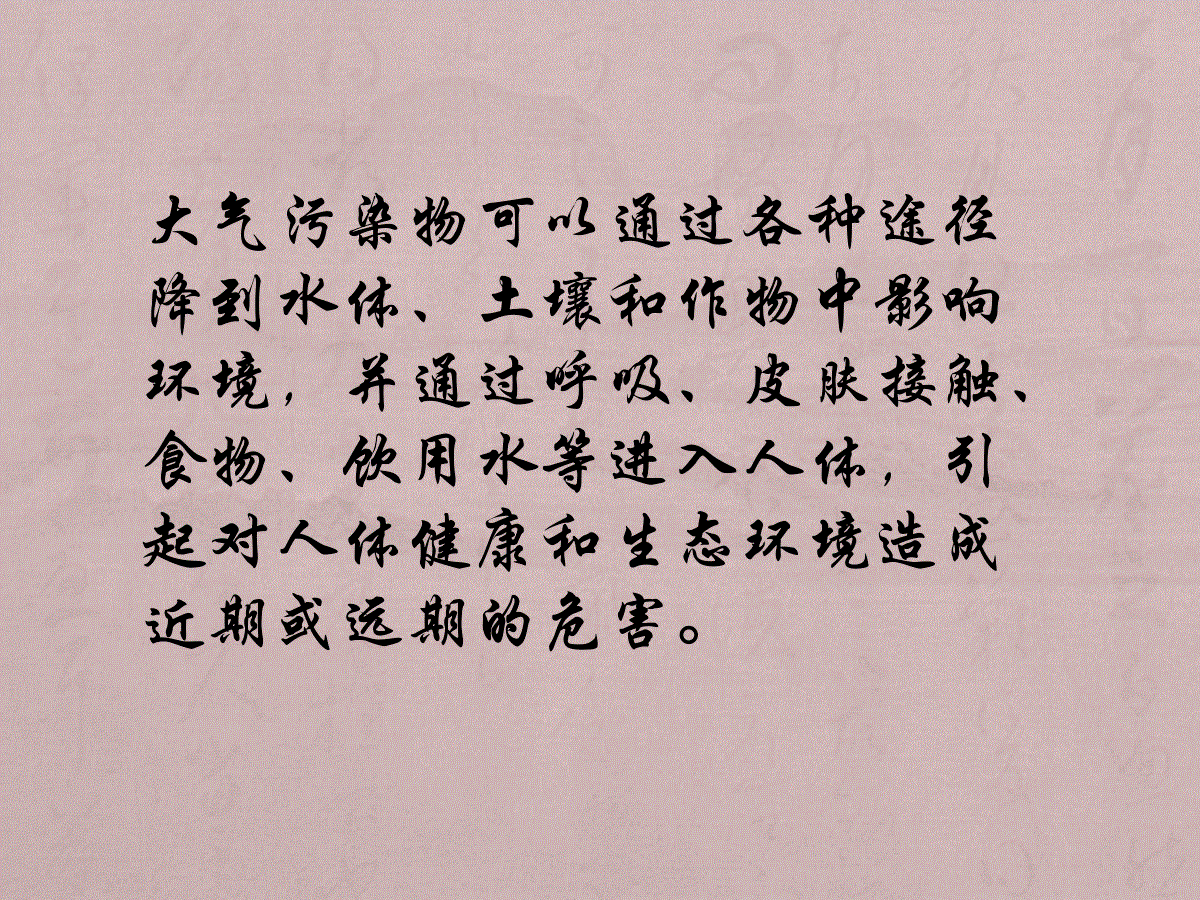 大气污染物可以通过各种途径
降到水体、土壤和作物中影响
环境，并通过呼吸、皮肤接触、
食物、饮用水等进入人体，引
起对人体健康和生态环境造成
近期或远期的危害。